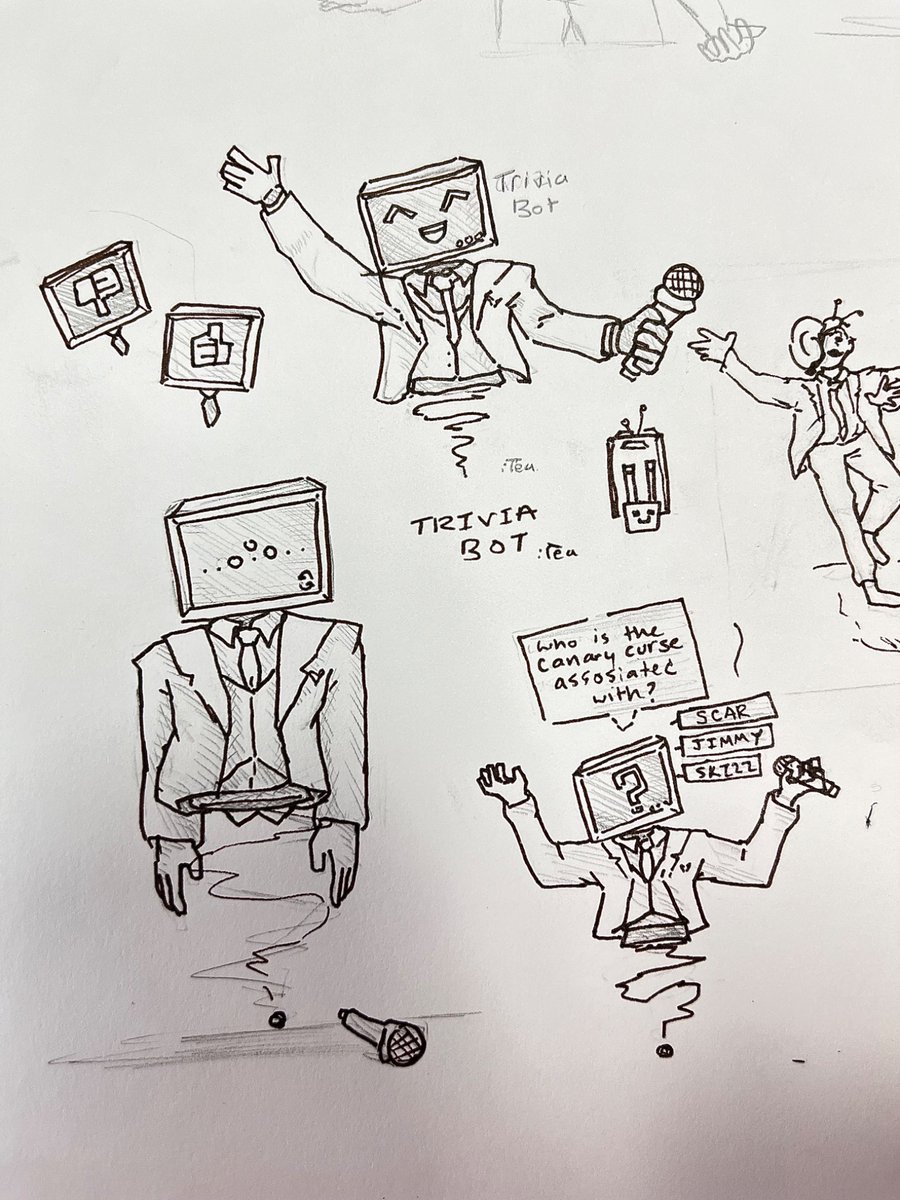 Trivia
Bot
:Tea
TRIVIA
BOT :Tea
who is the
canary curse
assosiated
with?
SCAR
JIMMY
SKIZZ
?